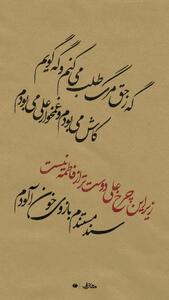 گه ز حق مرگ طلب می‌کنم و گه گویم
کاش می‌بودم و غمخوار علی می‌بودم
زیر این چرخ علی دوست‌تر از فاطمه نیست
سند مستندم بازوی خون آلودم